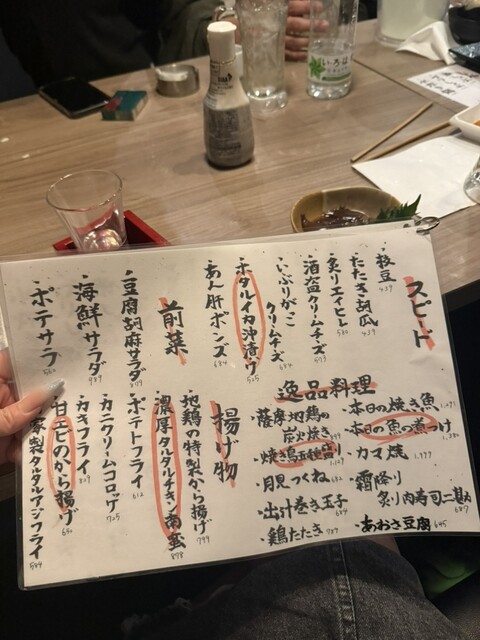 スピード
・枝豆 439
・たたき胡瓜 439
・炙りエイヒレ 580
・酒盗クリームチーズ 573
・いぶりがっこクリームチーズ 684
・ホタルイカ沖漬け 525
・あん肝ポンズ 684
前菜
・豆腐胡麻サラダ 879
・海鮮サラダ 989
・ポテサラ
逸品料理
・本日の焼き魚
・本日の魚の煮つけ
・カマ焼 1,999
・霜降り炙り肉寿司二貫 687
・あおさ豆腐 645
・薩摩地鶏の炭火焼き
・焼き鳥五種盛り
・月見つくね
・出汁巻き玉子 684
・鶏たたき 789
揚げ物
・地鶏の特製から揚げ 799
・濃厚タルタルチキン南蛮 878
・ポテトフライ 612
・カニクリームコロッケ 725
・カキフライ 809
・甘エビのから揚げ 652
家製タルタルアジフライ 584
いろは